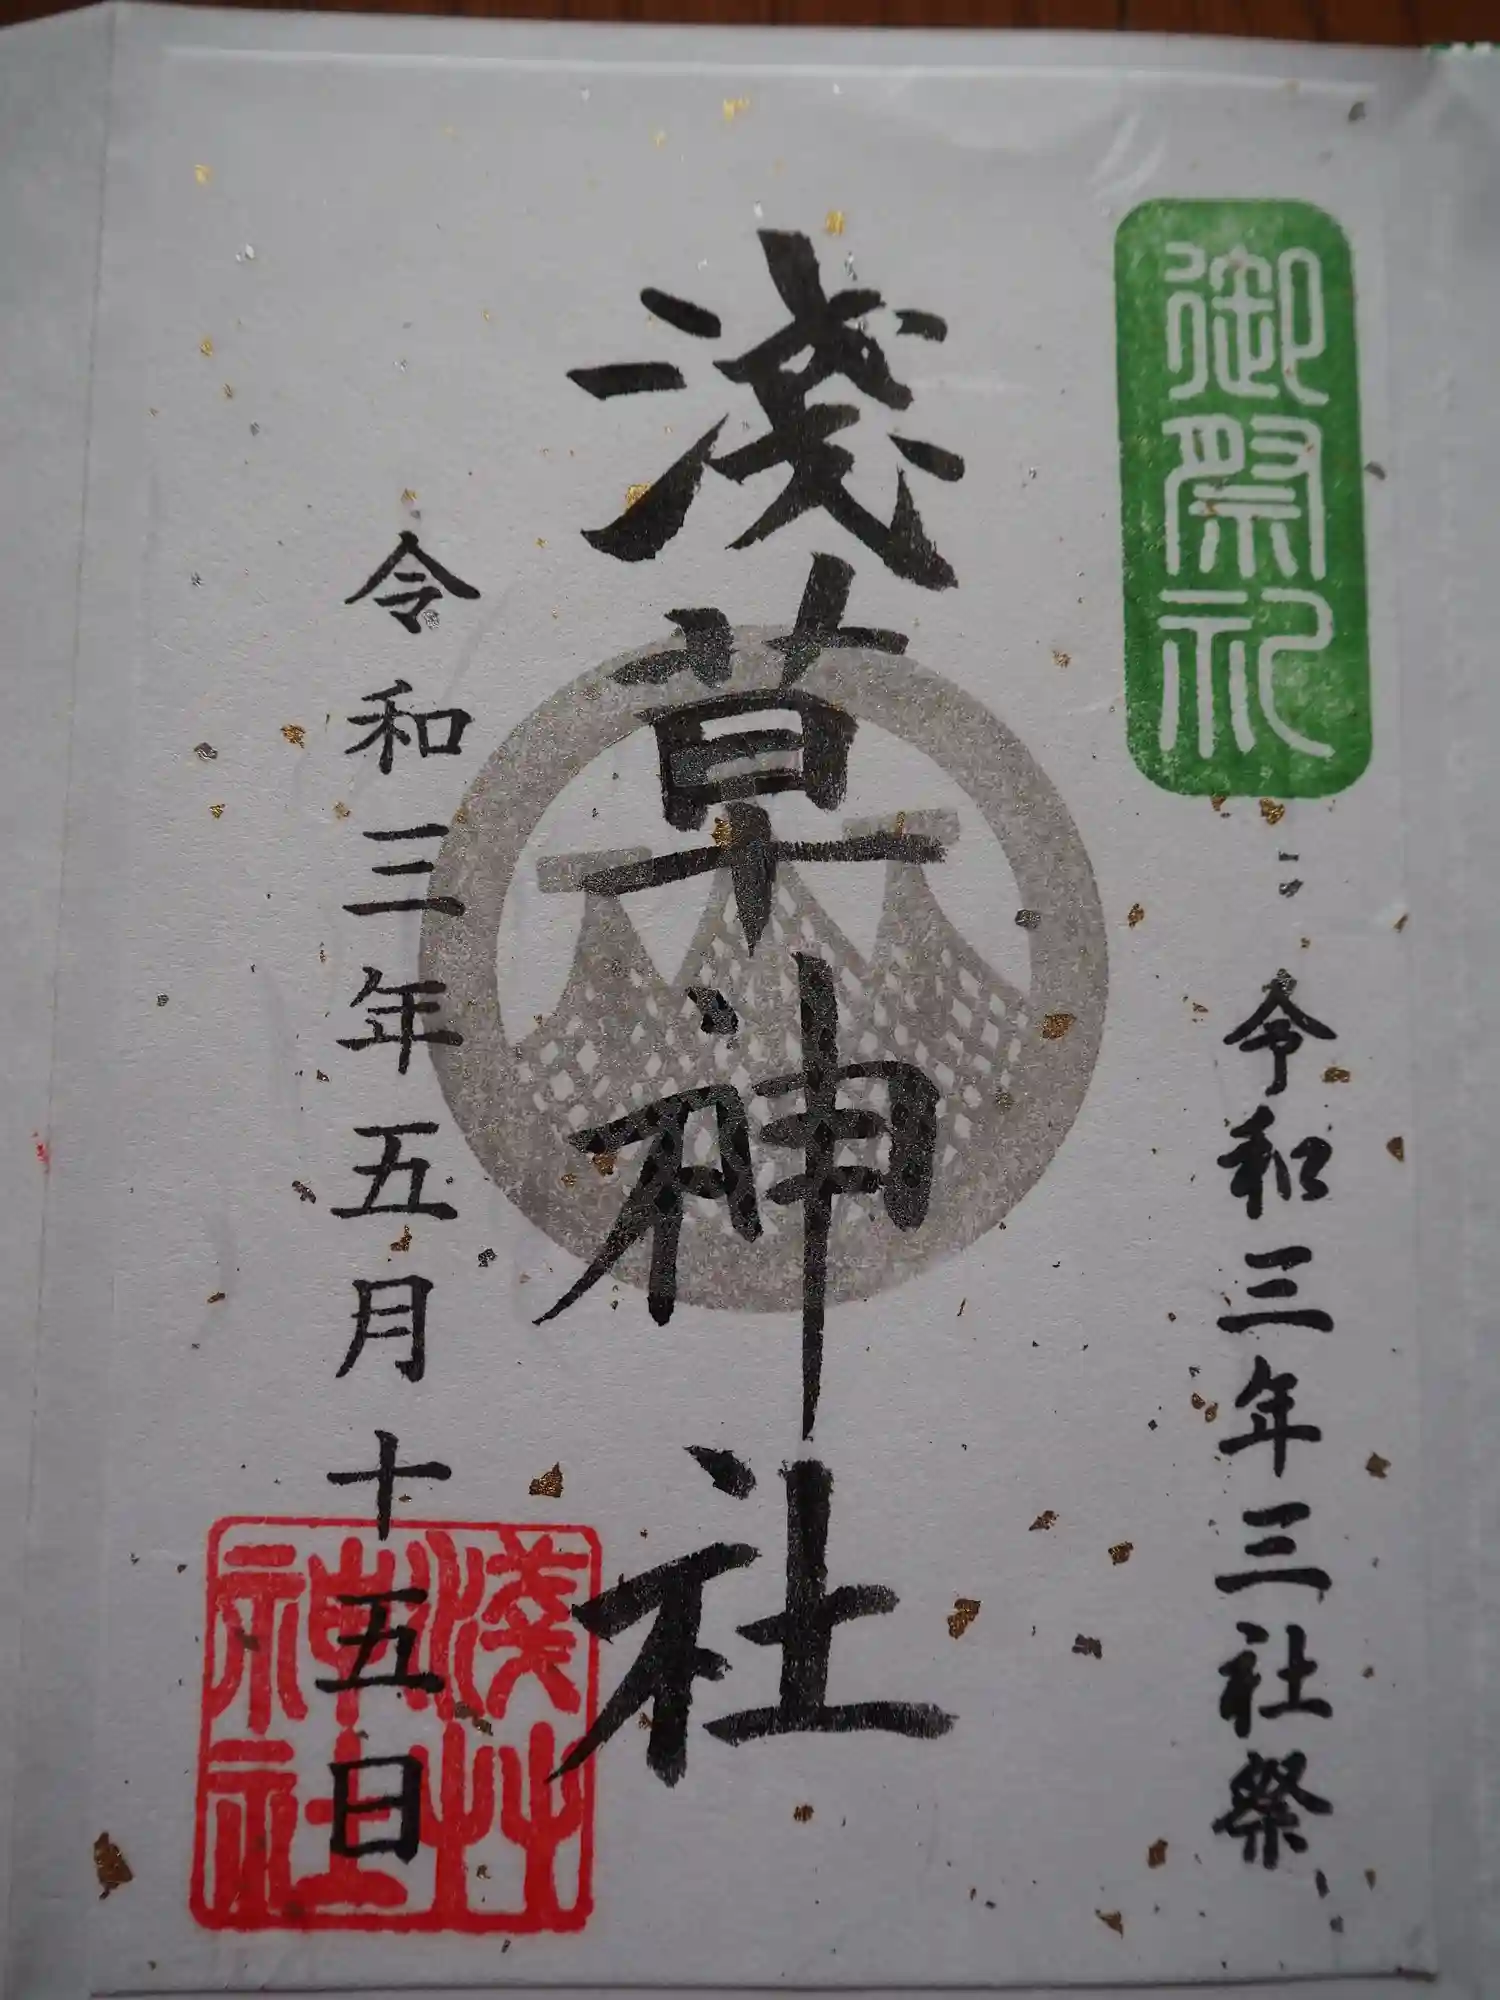 御祭礼
令和三年三社祭
浅草神社
令和三年五月十五日
淺艸
神社